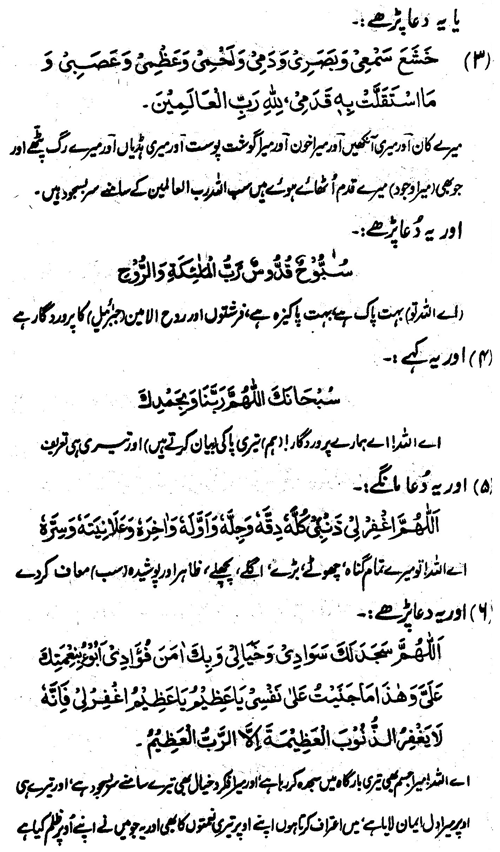 یا یہ دعا پڑھے :۔
(۳) خَشَعَ سَمْعِىْ وَبَصَرِىْ وَدَمِىْ وَلَحْمِىْ وَعَظْمِىْ وَعَصَبِىْ وَ
مَا اسْتَقَلَّتْ بِهٖ قَدَمِىْ، لِلّٰهِ رَبِّ الْعَالَمِيْنَ۔
میرے کان اور میری آنکھیں اور میرا خون اور میرا گوشت پوست اور میری ہڈیاں اور میرے رگ پٹھے اور
جو بھی (میرا وجود) میرے قدم اُٹھائے ہوئے ہیں سب اللہ رب العالمین کے سامنے سربسجود ہیں۔
اور یہ دُعا پڑھے :۔
سُبُّوْحٌ قُدُّوْسٌ رَبُّ الْمَلٰئِكَةِ وَالرُّوْحِ
(اے اللہ تو) بہت پاک ہے، بہت پاکیزہ ہے، فرشتوں اور روح الامین (جبرئیل) کا پروردگار ہے
(۴) اور یہ کہے :۔
سُبْحَانَكَ اللّٰهُمَّ رَبَّنَا وَبِحَمْدِكَ
اے اللہ! اے ہمارے پروردگار! (ہم) تیری پاکی بیان کرتے ہیں) اور تیری ہی تعریف
(۵) اور یہ دُعا مانگے :۔
اَللّٰهُمَّ اغْفِرْ لِىْ ذَنْبِىْ كُلَّهٗ دِقَّهٗ وَجِلَّهٗ وَاَوَّلَهٗ وَاٰخِرَهٗ وَعَلَانِيَتَهٗ وَسِرَّهٗ
اے اللہ! تو میرے تمام گناہ، چھوٹے، بڑے، اگلے، پچھلے، ظاہر اور پوشیدہ (سب) معاف کر دے
(۶) اور یہ دعا پڑھے :۔
اَللّٰهُمَّ سَجَدَ لَكَ سَوَادِىْ وَخَيَالِىْ وَبِكَ اٰمَنَ فُؤَادِىْ اَبُوْءُ بِنِعْمَتِكَ
عَلَىَّ وَهٰذَا مَا جَنَيْتُ عَلٰى نَفْسِىْ يَا عَظِيْمُ يَا عَظِيْمُ اغْفِرْ لِىْ فَاِنَّهٗ
لَا يَغْفِرُ الذُّنُوْبَ الْعَظِيْمَةَ اِلَّا الرَّبُّ الْعَظِيْمُ۔
اے اللہ! میرا جسم بھی تیری بارگاہ میں سجدہ کر رہا ہے، اور میرا فکر و خیال بھی تیرے سامنے سربسجود ہے، اور تیرے ہی
اوپر میرا دل ایمان لایا ہے، میں اعتراف کرتا ہوں اپنے اوپر تیری نعمتوں کا بھی اور یہ جو میں نے اپنے اُوپر ظلم کیا ہے